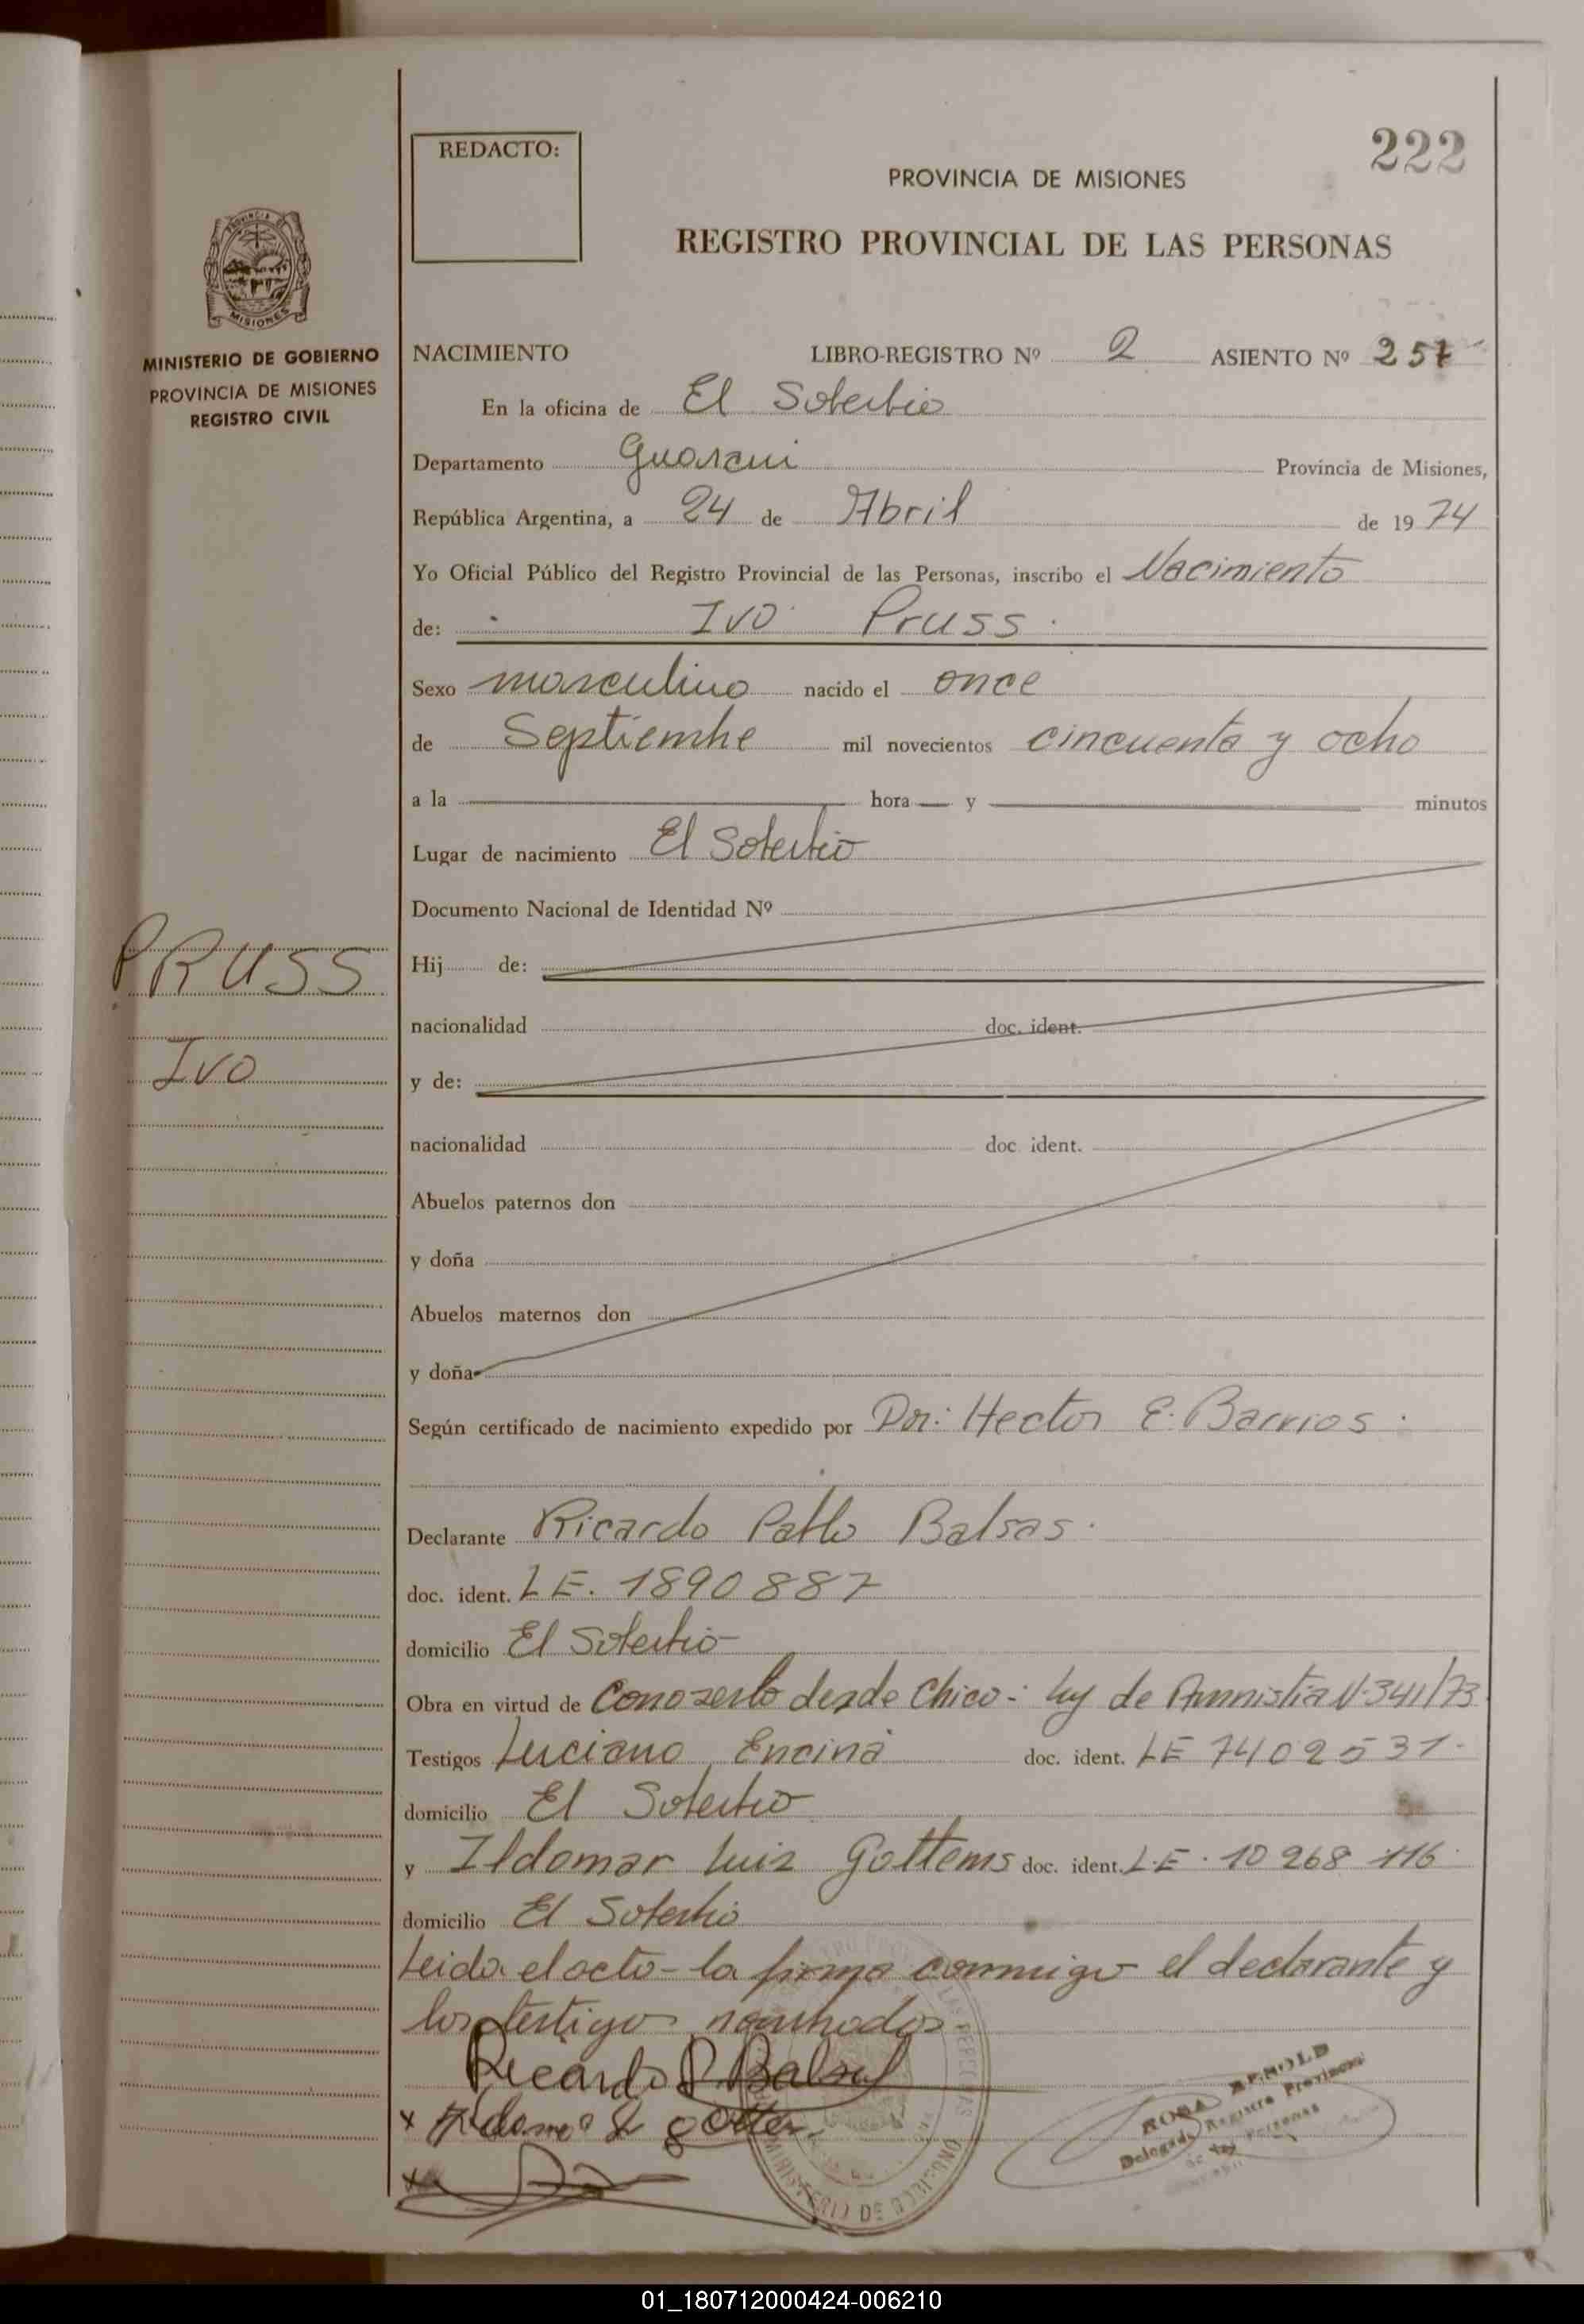 222
REDACTO:
PROVINCIA DE MISIONES
REGISTRO PROVINCIAL DE LAS PERSONAS
PROVINCIA DE
MISIONES
MINISTERIO DE GOBIERNO
PROVINCIA DE MISIONES
REGISTRO CIVIL
NACIMIENTO LIBRO-REGISTRO Nº 2 ASIENTO Nº 257
En la oficina de El Soberbio
Departamento Guarani Provincia de Misiones,
República Argentina, a 24 de Abril de 1974
Yo Oficial Público del Registro Provincial de las Personas, inscribo el Nacimiento
de: Ivo Pruss.
Sexo masculino nacido el once
de Septiembre mil novecientos cincuenta y ocho
a la hora y minutos
Lugar de nacimiento El Soberbio
Documento Nacional de Identidad Nº
PRUSS
Ivo
Hij de:
nacionalidad doc. ident.
y de:
nacionalidad doc. ident.
Abuelos paternos don
y doña
Abuelos maternos don
y doña
Según certificado de nacimiento expedido por Dr: Hector E. Barrios.
Declarante Ricardo Pablo Balsas.
doc. ident. LE. 1890887
domicilio El Soberbio
Obra en virtud de Conozerlo desde Chico-: Ley de Amnistia N.341/73
Testigos Luciano Encina doc. ident. LE 7402531.
domicilio El Soberbio
y Ildomar Luis Gottems doc. ident. L.E. 10 968 116
domicilio El Soberbio
Leida el acto- la firma conmigo el declarante y
los testigos nombrados
Ricardo P. Balsas
ROSA ARNOLD
Delegada Registro Provincial
de las Personas
01_180712000424-006210